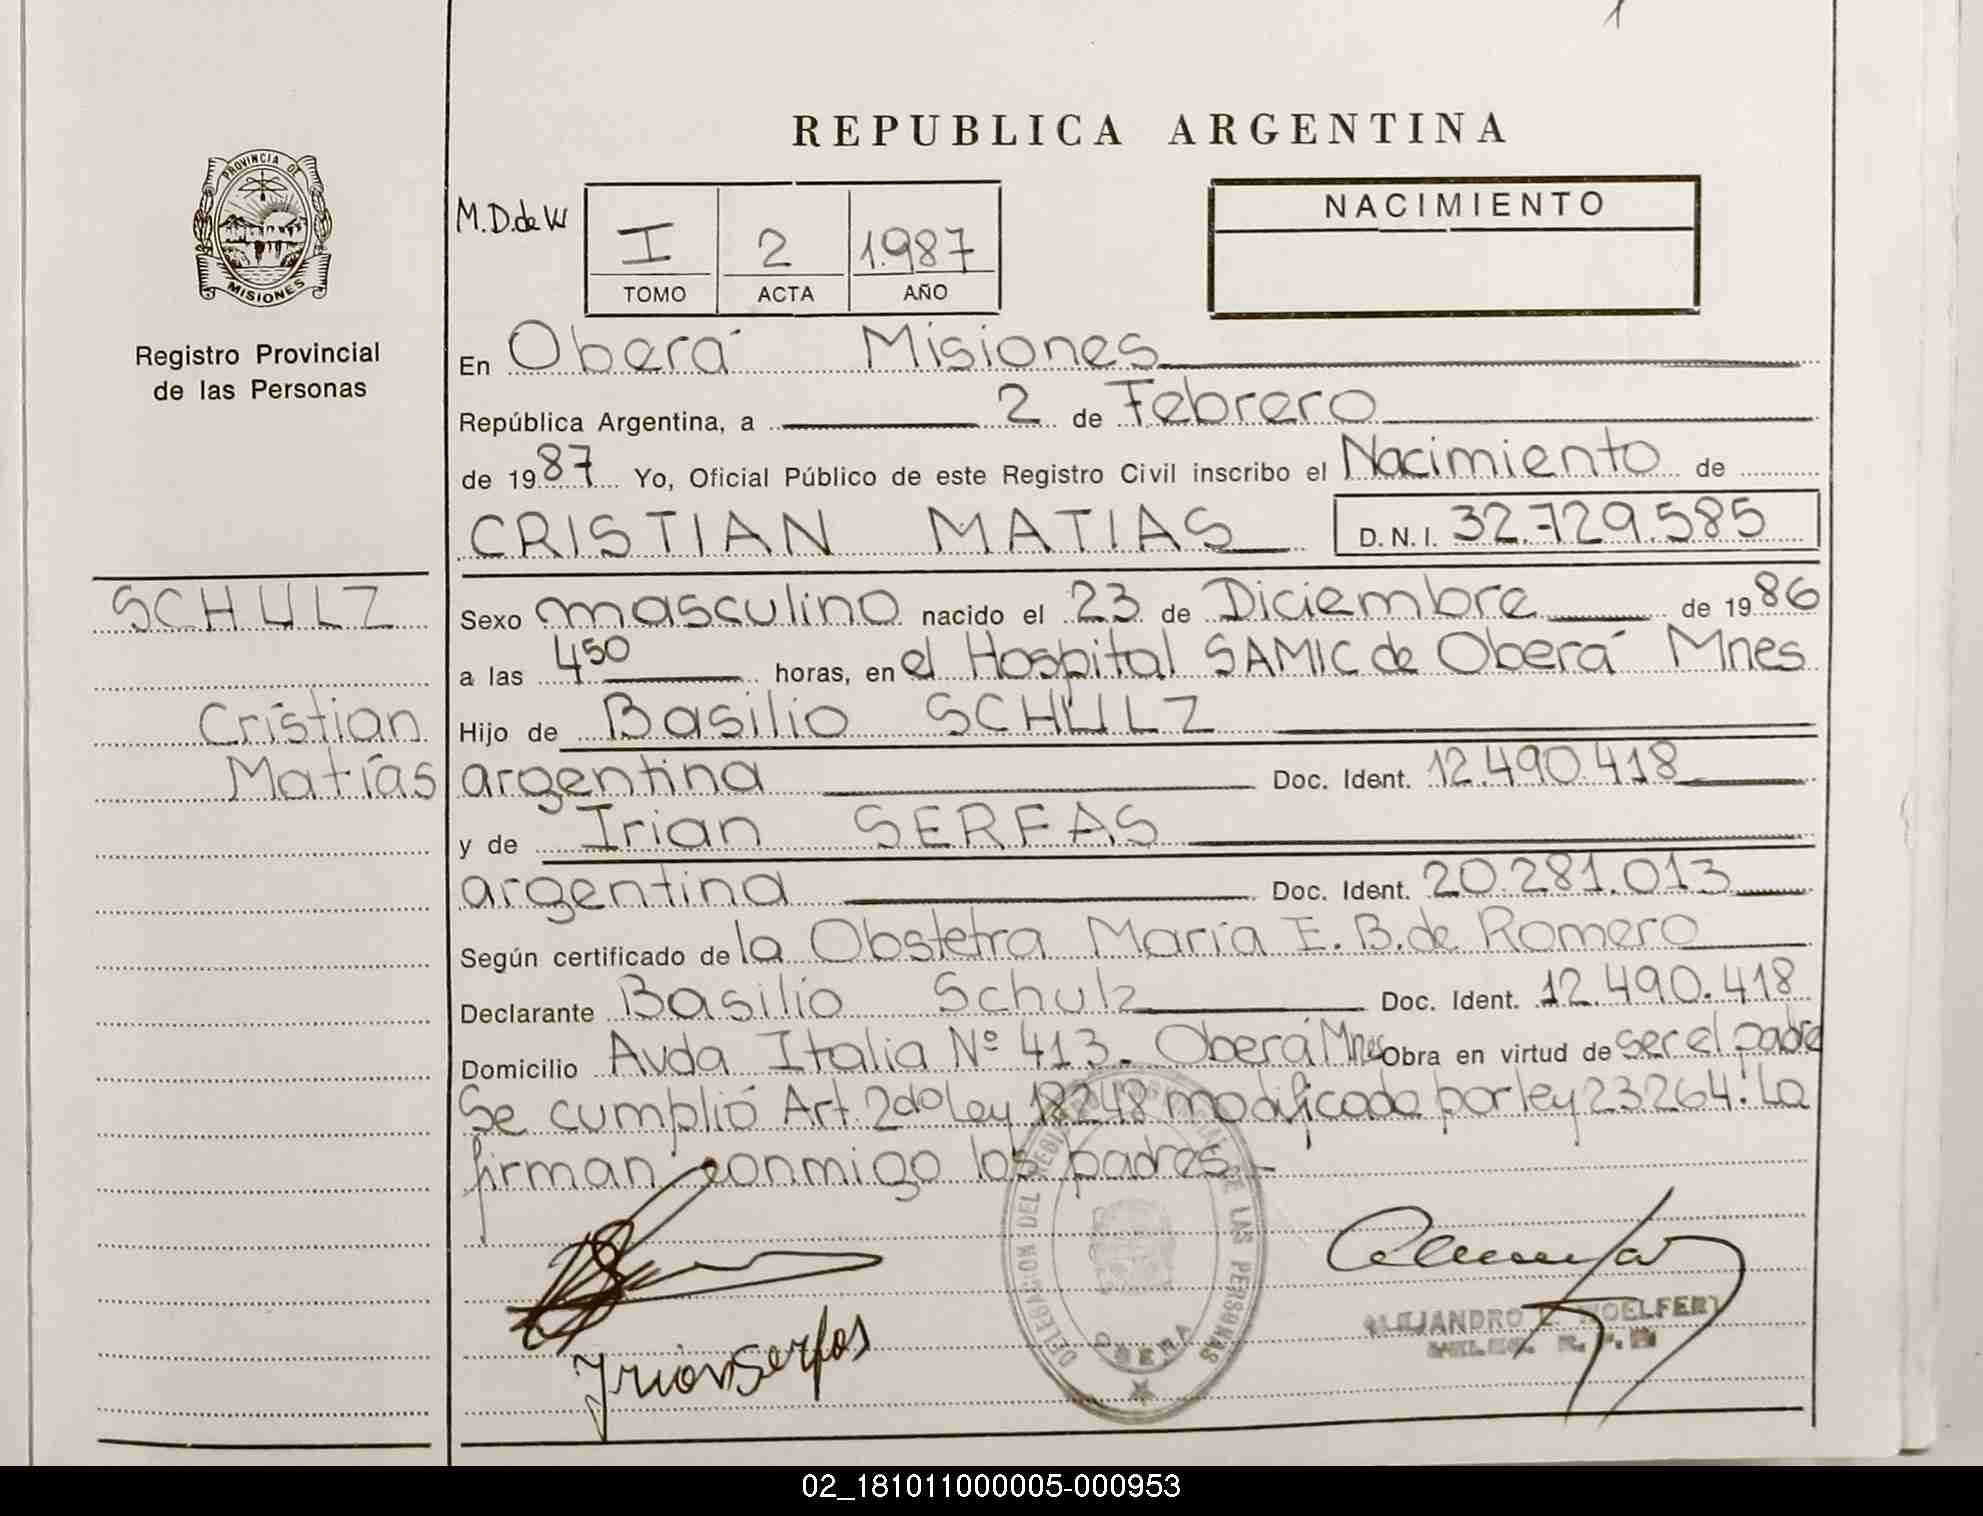 REPUBLICA ARGENTINA
PROVINCIA DE
MISIONES
Registro Provincial
de las Personas
M.D.de W
I 2 1.987
TOMO ACTA AÑO
NACIMIENTO
En Oberá Misiones
República Argentina, a 2 de Febrero
de 19 87 Yo, Oficial Público de este Registro Civil inscribo el Nacimiento de
CRISTIAN MATIAS D.N.I. 32.729.585
SCHULZ
Cristian
Matías
Sexo masculino nacido el 23 de Diciembre de 19 86
a las 4 50 horas, en el Hospital SAMIC de Oberá Mnes
Hijo de Basilio SCHULZ
argentina Doc. Ident. 12.490.418
y de Irian SERFAS
argentina Doc. Ident. 20.281.013
Según certificado de la Obstetra María E. B. de Romero
Declarante Basilio Schulz Doc. Ident. 12.490.418
Domicilio Avda Italia Nº 413. Oberá Mnes Obra en virtud de ser el padre
Se cumplió Art. 2do Ley 18248 modificado por ley 23264: La
firman conmigo los padres.-
Irian Serfas
DELEGACION DEL REGISTRO PROVINCIAL DE LAS PERSONAS
OBERA
ALEJANDRO
02_181011000005-000953